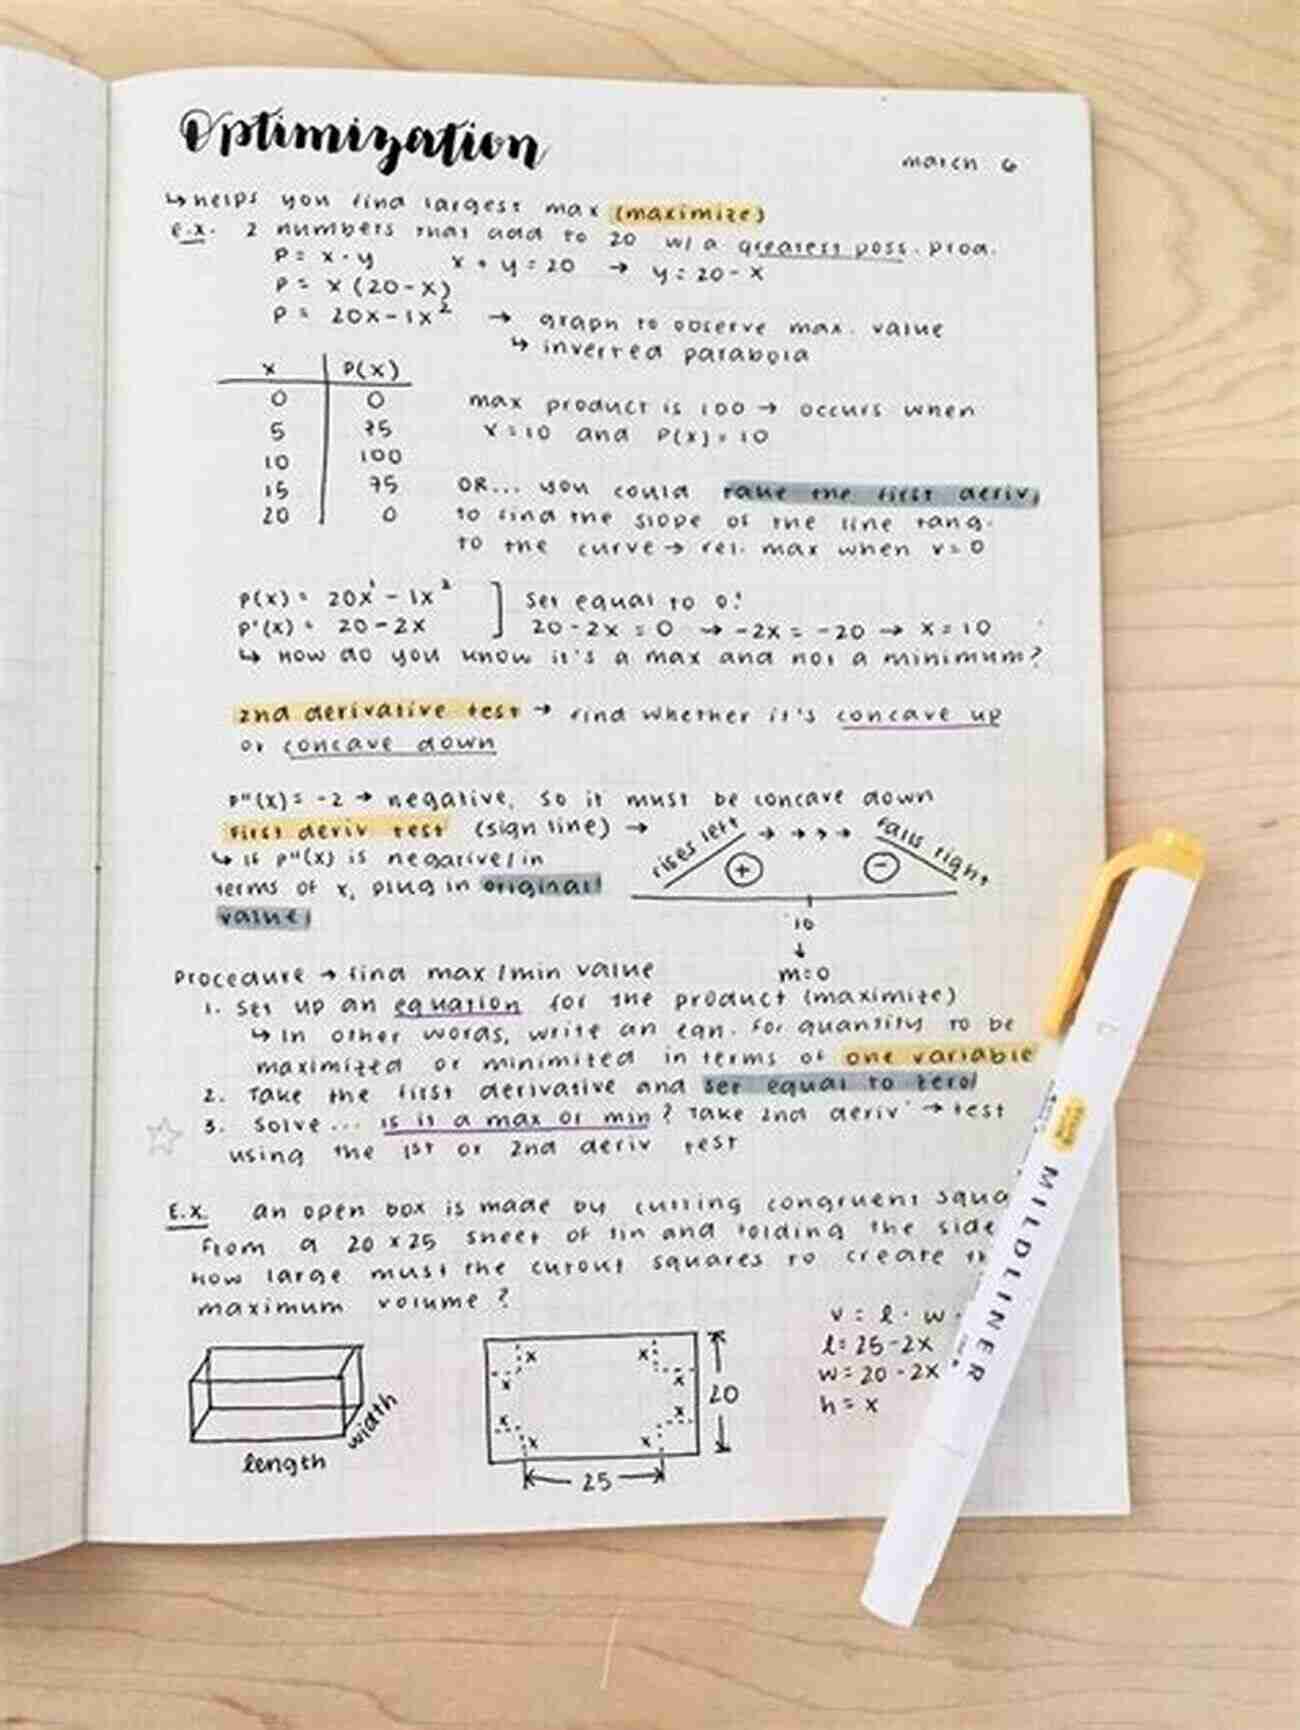 Optimization
march 6
↳ helps you find largest max (maximize)
E.x. 2 numbers that add to 20 w/ a greatest poss. prod.
P = x · y x + y = 20 → y = 20 - x
P = x (20 - x)
P = 20x - 1x² → graph to observe max. value
↳ inverted parabola
x P(x)
0 0
5 75
10 100
15 75
20 0
max product is 100 → occurs when
x = 10 and P(x) = 10
OR... you could take the first deriv.
to find the slope of the line tang.
to the curve → rel. max when v = 0
P(x) = 20x¹ - 1x²
P'(x) = 20 - 2x
Set equal to 0!
20 - 2x = 0 → -2x = -20 → x = 10
↳ How do you know it's a max and not a minimum?
2nd derivative test → find whether it's concave up
or concave down
P"(x) = -2 → negative, so it must be concave down
first deriv test (sign line) →
↳ if P"(x) is negative/in
terms of x, plug in original
value
rises left → → → → → falls right
+ -
10
↓
m = 0
Procedure → find max/min value
1. Set up an equation for the product (maximize)
↳ In other words, write an eqn. for quantity to be
maximized or minimized in terms of one variable
2. Take the first derivative and set equal to zero!
3. Solve... is it a max or min? Take 2nd deriv → test
using the 1st or 2nd deriv test
E.x. an open box is made by cutting congruent squa
from a 20 x 25 sheet of tin and folding the side
How large must the cutout squares to create th
maximum volume?
length
width
x x
x x
x x
x x
20
25
v = l · w ·
l = 25 - 2x
w = 20 - 2x
h = x
MILDLINER